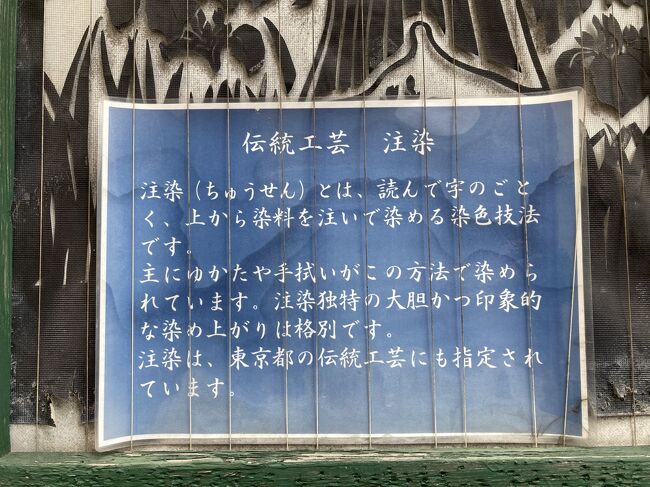 伝統工芸　注染
注染（ちゅうせん）とは、読んで字のごと
く、上から染料を注いで染める染色技法
です。
主にゆかたや手拭いがこの方法で染めら
れています。注染独特の大胆かつ印象的
な染め上がりは格別です。
注染は、東京都の伝統工芸にも指定され
ています。